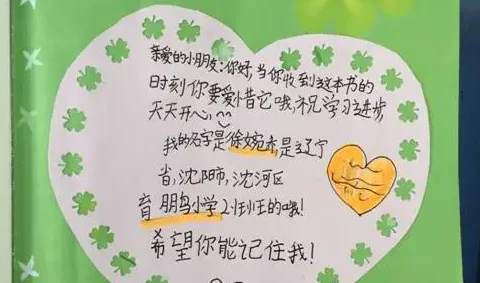 亲爱的小朋友:你好,当你收到这本书的
时刻你要爱惜它哦,祝学习进步,
天天开心,
我的名字是徐婉,是辽宁
省,沈阳市,沈河区
育鹏小学2班的哦!
希望你能记住我!